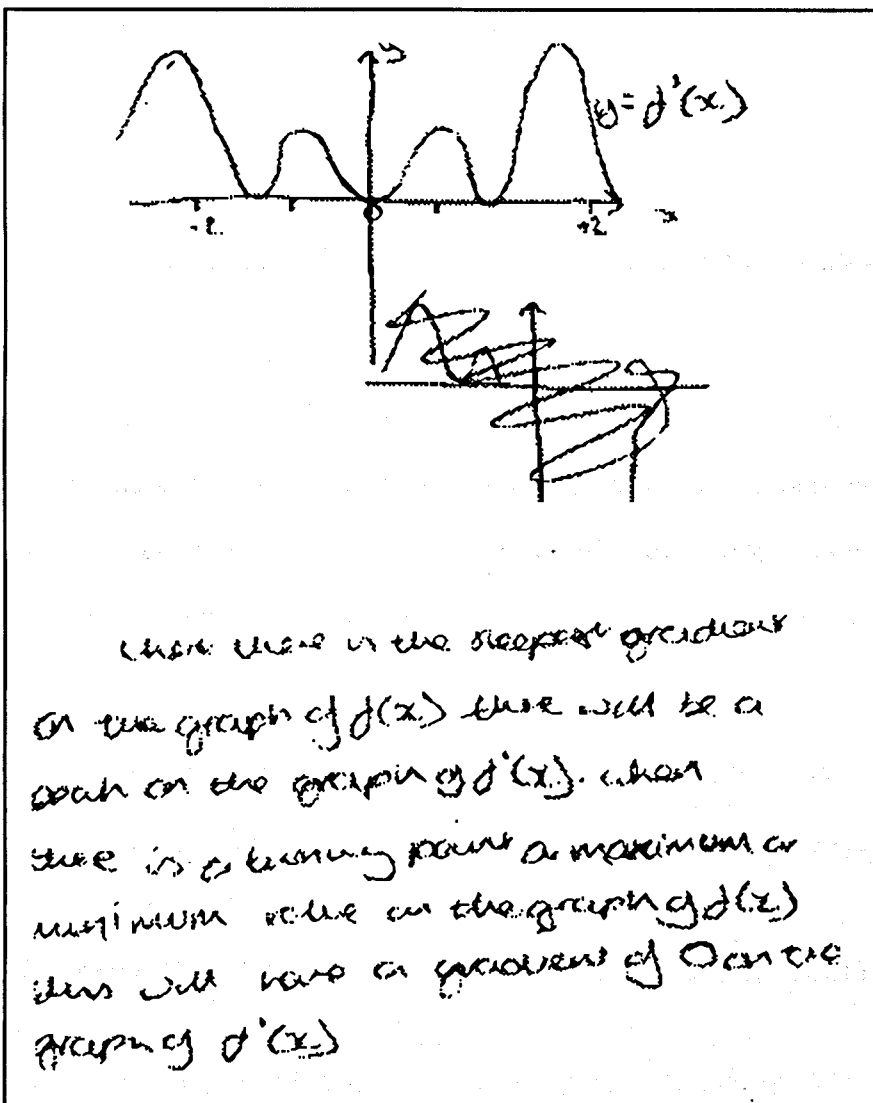 y
y = f'(x)
-2
0
+2
x
when there is the steepest gradient
on the graph of f(x) there will be a
peak on the graph of f'(x). when
there is a turning point a maximum or
minimum value on the graph of f(x)
this will have a gradient of 0 on the
graph of f'(x)